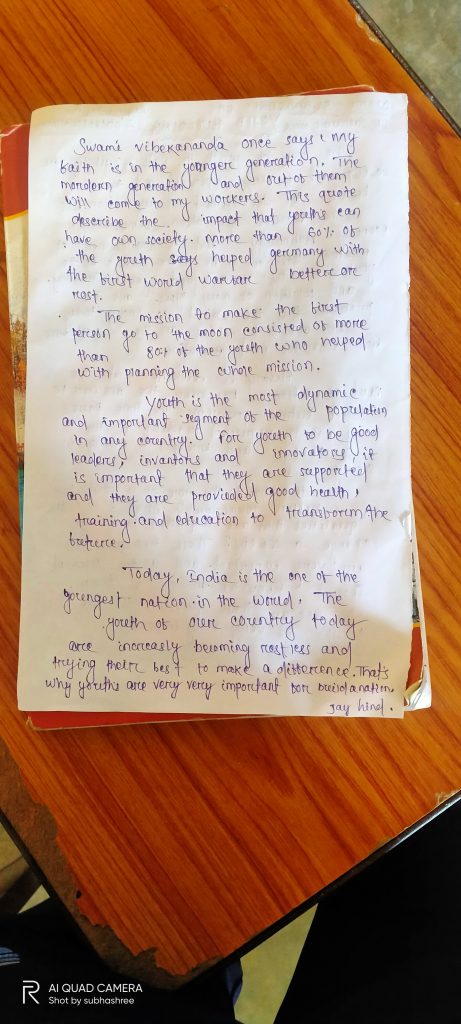 Swami vibekananda once says, My
faith is in the younger generation. The
mordern generation and out of them
will come to my workers. This quote
describe the impact that youths can
have own society. more than 60% of
the youth says helped germany with
the first world warfare better or
rest.
The mission to make the first
person go to the moon consisted of more
than 80% of the youth who helped
with planning the whole mission.
Youth is the most dynamic
and important segment of the population
in any country. For youth to be good
leaders, inventors and innovators, it
is important that they are supported
and they are provieded good health,
training and education to transform the
future.
Today, India is the one of the
youngest nation in the world. The
youth of our country today
are increasly becoming restless and
trying their best to make a difference. That's
why youths are very very important for build a nation.
Jay hind.
AI QUAD CAMERA
Shot by subhashree